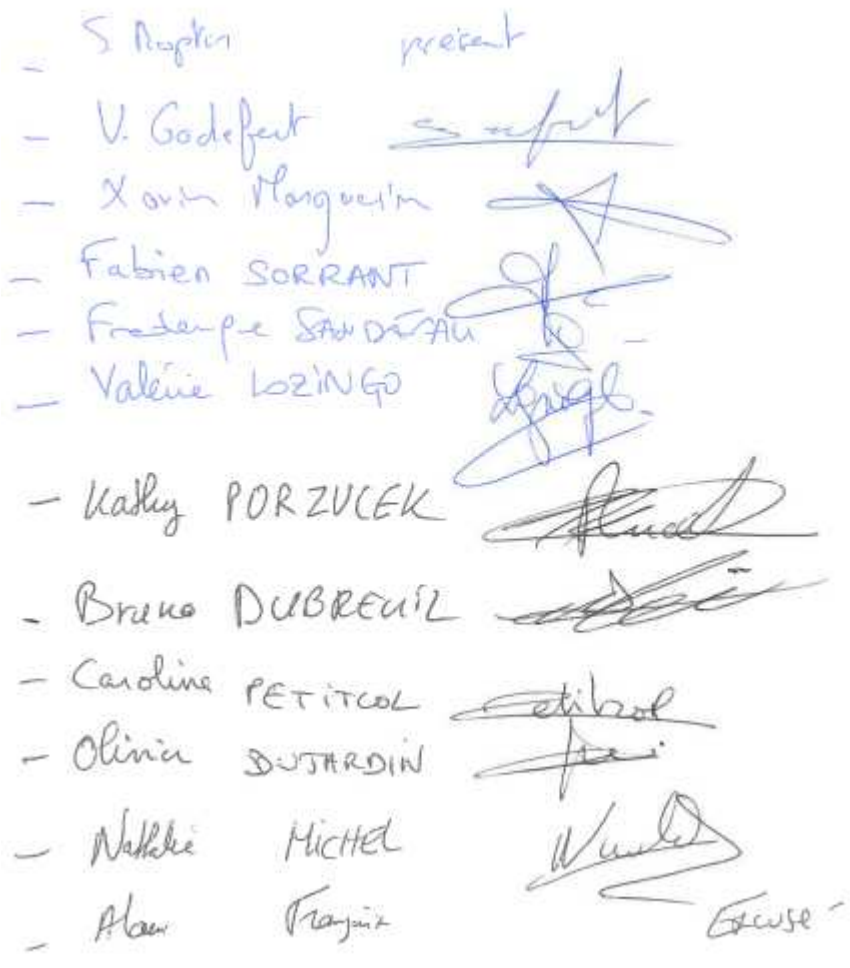 - S. Roptin présent
- V. Godefert
- Xavier Marguerin
- Fabien SORRANT
- Frédérique
- Valérie LOZINGO
- Kathy PORZUCEK
- Bruno DUBREUIL
- Caroline PETITCOL Petitcol
- Olivier DUJARDIN
- Nathalie MICHEL
- Alain François Excusé